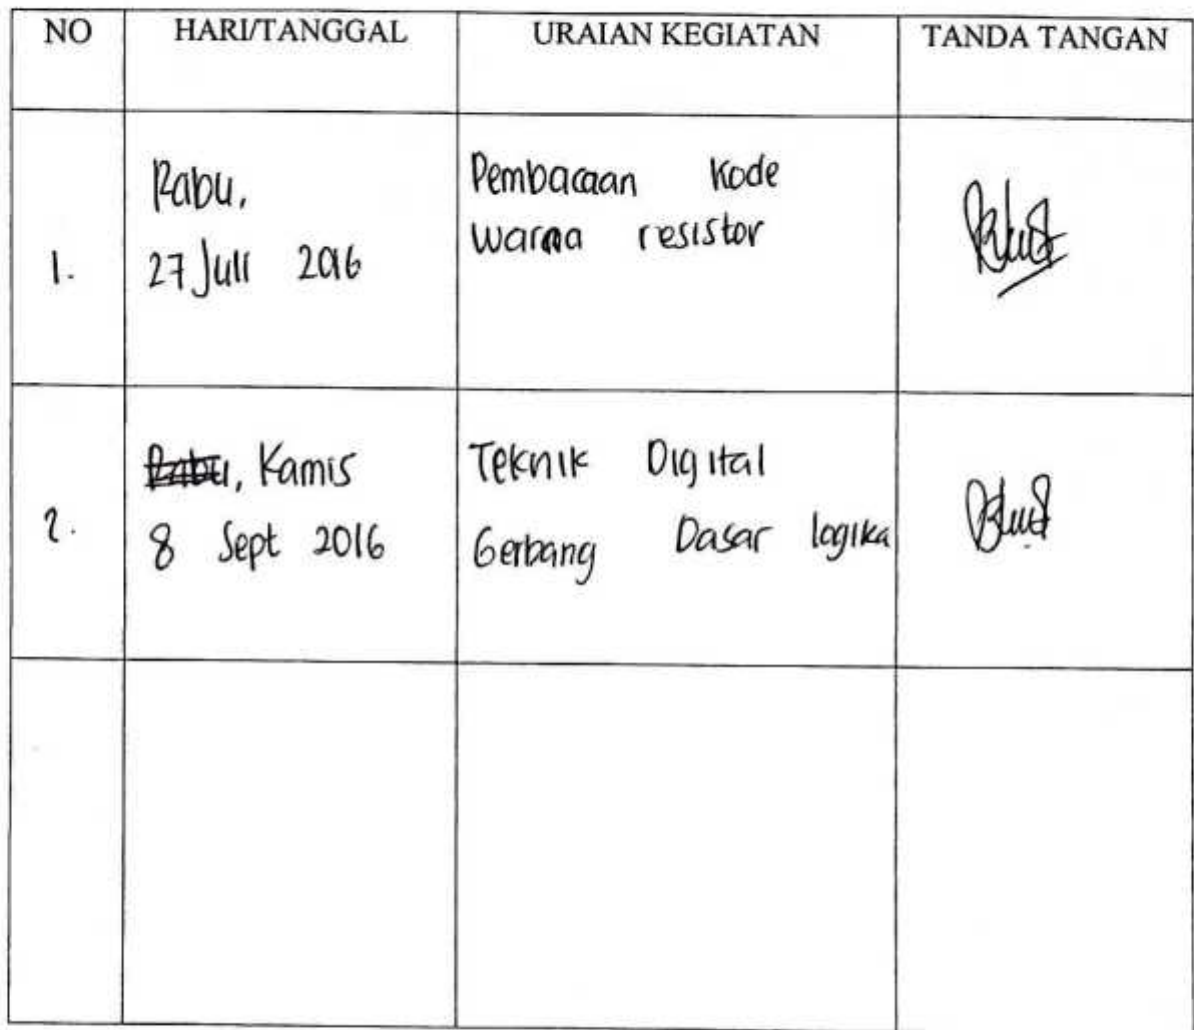 NO HARI/TANGGAL URAIAN KEGIATAN TANDA TANGAN
1.
Rabu,
27 Juli 2016
Pembacaan Kode
warna resistor
2.
Rabu, Kamis
8 Sept 2016
Teknik Digital
Gerbang Dasar logika